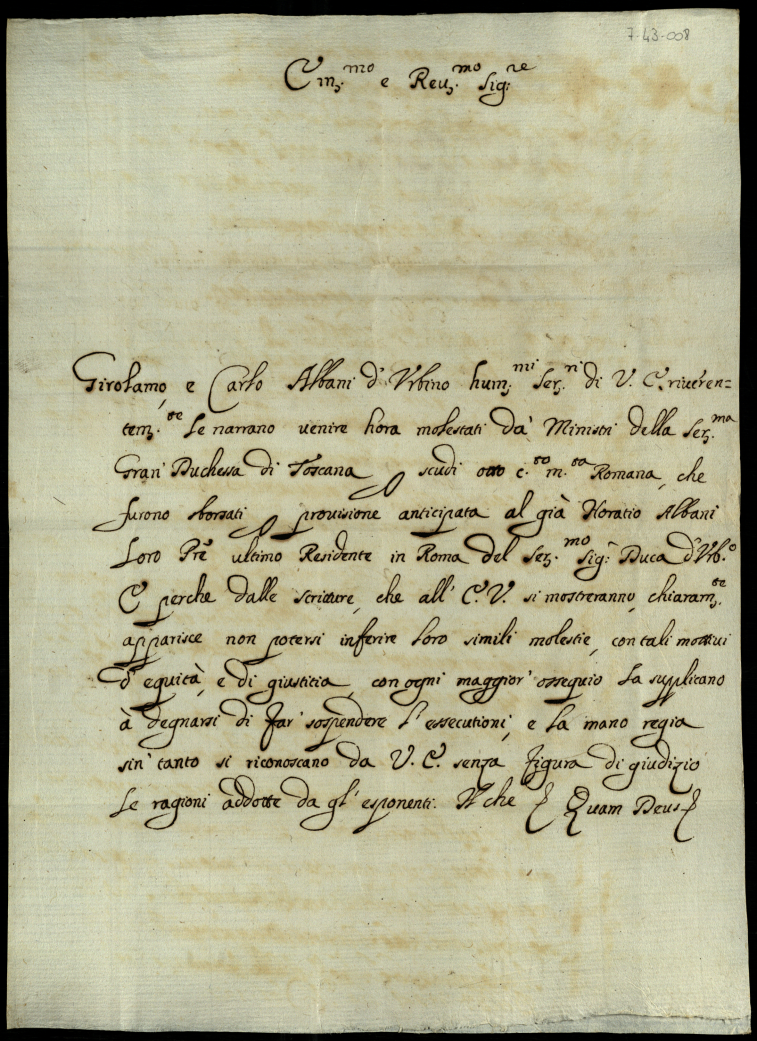 7-43-008
Em.mo e Reu.mo Sig.re
Girolamo, e Carlo Albani d'Vrbino hum.mi Ser.ri di V. E. riueren=
tem.te Le narrano uenire hora molestati da' Ministri della Ser.ma
Gran' Duchessa di Toscana scudi otto c.to m.ta Romana, che
furono sborsati prouisione anticipata al già Horatio Albani
Loro Prē ultimo Residente in Roma del Ser.mo Sig.r Duca d'Vrb.o
E perche dalle scritture, che all' E. V. si mostreranno, chiaram.te
apparisce non potersi inferire Loro simili molestie, con tali mottiui
d'equità, e di giustitia, con ogni maggior' ossequio La supplicano
à degnarsi di far' sospendere l'essecutioni, e la mano regia
sin' tanto si riconoscano da V. E. senza figura di giudizio
Le ragioni addotte da gl'esponenti. Il che Quam Deus